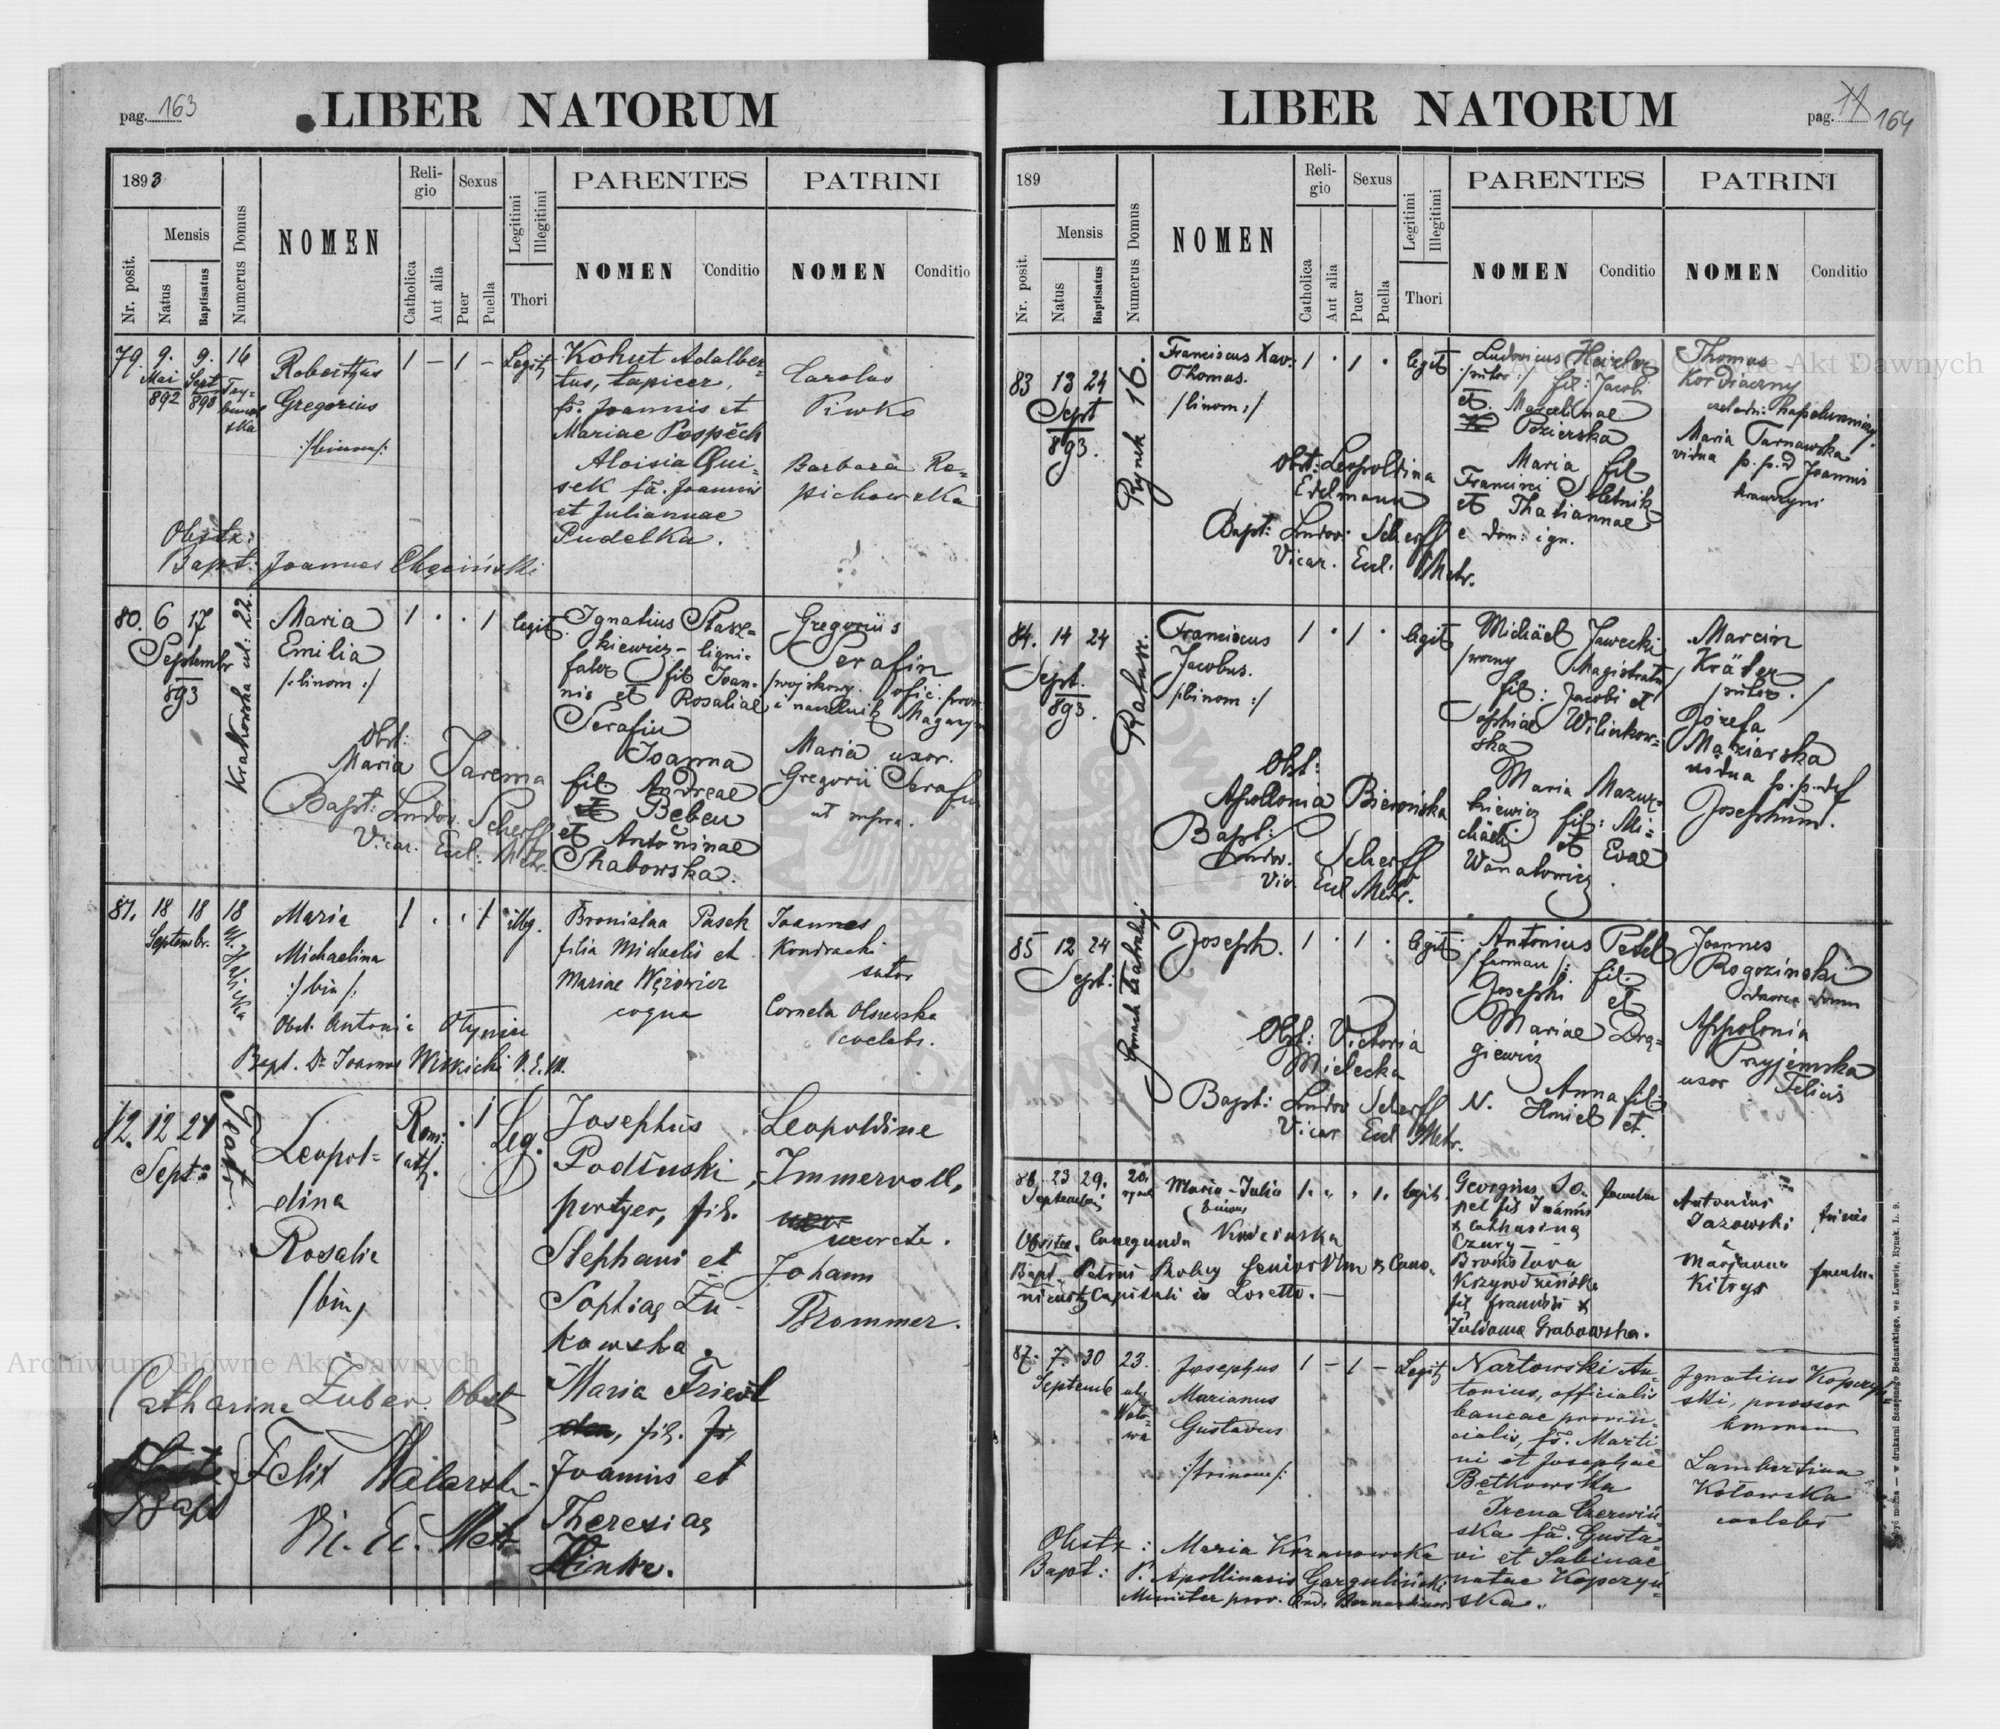 pag. 163
LIBER NATORUM
1893
Nr. posit.
Mensis
Natus
Baptisatus
Numerus Domus
NOMEN
Reli-
gio
Catholica
Aut alia
Sexus
Puer
Puella
Legitimi
Illegitimi
Thori
PARENTES
NOMEN
Conditio
PATRINI
NOMEN
Conditio
79. 9. 9. 16
Mai Sept
892 893
Robertus
Gregorius
/:binom:/
1 – 1 – Legit
Kohut Adalber-
tus, tapicer,
fs. Joannis et
Mariae Pospěch
Aloisia Qui-
sek fa. Joannis
et Juliannae
Pudelka.
Carolus
Piwko
Barbara Ro-
pichowska
Obstr:
Bapt: Joannes Chęciński
80. 6 17
Septembr
893
Krakowska ul: 22.
Maria
Emilia
/:binom:/
1 . . 1 legit
Ignatius Stasz-
kiewicz – ligni-
faber fil Joan-
nis et Rosaliae
Serafin
Joanna
fil Andreae
Beben
et Antoninae
Shabowska.
Gregorius
Serafin
Maria uxor.
Gregorii Serafin
ut supra.
Obst:
Maria Jarema
Bapt: Ludov. Scherff
Vicar. Eccl: Metr.
81. 18 18 18
Septembr.
Ul. Halicka
Maria
Michaelina
/:bin:/
1 . . 1 illeg.
Bronislaa Pasek
filia Michaelis et
Mariae Wężowicz
coqua
Joannes
Kondracki
sutor
Cornela Olszewska
coelebs.
Obst. Antonia
Bapt. Dr Joannes
V. E. M.
82. 12 24
Sept:
Teatr.
Leopol-
dina
Rosalie
/bin/
Rom:
cath.
. 1 Leg.
Josephus
Podłuski,
portyer, fil.
Stephani et
Sophiae Żu-
kowska.
Maria Friedl
fil.
Joannis et
Theresiae
Hinke.
Leopoldine
Immervoll,
Johann
Brommer.
Catharine Zuber Obst
Bapt Felix
Vi. Ec. Metr.
LIBER NATORUM
pag. 164
189
Nr. posit.
Mensis
Natus
Baptisatus
Numerus Domus
NOMEN
Reli-
gio
Catholica
Aut alia
Sexus
Puer
Puella
Legitimi
Illegitimi
Thori
PARENTES
NOMEN
Conditio
PATRINI
NOMEN
Conditio
83 13 24
Sept
893.
Rynek 16.
Franciscus Xav:
Thomas.
/binom:/
1 . 1 . legit
Ludovicus
fil: Jacobi
et Marcelinae
Pozierska
Maria fil
Francisci Sletnik
et Thatiannae
e dom: ign.
Thomas
Maria Tarnawska
vidua p. p. d Joannis
Obst: Leopoldina
Edelmann
Bapt: Ludov: Scherff
Vicar. Eccl. Metr.
84. 14 24
Sept.
893.
Ratusz.
Franciscus
Jacobus.
/:binom:/
1 . 1 . legit
Michäel Jawecki
/woźny Magistratu
fil: Jacobi et
Sophiae Wilinkow-
ska
Maria Mazur-
kiewicz fil: Mi-
chäelis et Evae
Marcin
Kräter
Józefa
Maziarska
vidua p. p. def
Josephum.
Obst:
Apollonia Bierońska
Bapt:
Ludov. Scherff
Vic. Eccl Metr.
85 12 24
Sept:
Gmach teatralny
Joseph.
1 . 1 . legit.
Antonius Petel
/furman/: fil:
Josephi et
Mariae Drą-
giewicz
Anna fil:
N. Hmiel et.
Joannes
Rogoziński
Appolonia
Przyjemska
uxor Felicis
Obst: Victoria
Mielecka
Bapt: Ludov Scherff
Vicar Eccl Metr.
86. 23 29. 20.
Septembris rynek
Maria-Julia
binom
1. " " 1. legit.
Georgius So-
pel fil Joannis
& Catharina
Czury –
Bronislava
Krzywdzińska
fil Francisci &
Juliana Grabowska.
Antonius
Jazowski
&
Marianna
Kitrys
Obstetr. Cunegunda
Bapt Petrus
Capituli in Loretto. –
87. 7. 30 23.
Septemb
Josephus
Marianus
Gustavus
/:trinom:/
1 – 1 – Legit
Nartowski An-
tonius, officialis
bancae provin-
cialis, fs. Marti-
ni et Josephae
Bętkowska
Irena Czerwiń-
ska fa. Gusta-
vi et Sabinae
natae Kopczyń-
ska.
Ignatius Kopczyń
ski, possessor
bonorum
Lambertina
Kotowska
coelebs
Obstr: Maria Kozanowska
Bapt: P. Apollinaris Gargulinski
Minister prov. Ord. Bernardinor.
w drukarni Szczęsnego Bednarskiego, we Lwowie, Rynek. L. 9.
Archiwum Główne Akt Dawnych
Archiwum Główne Akt Dawnych